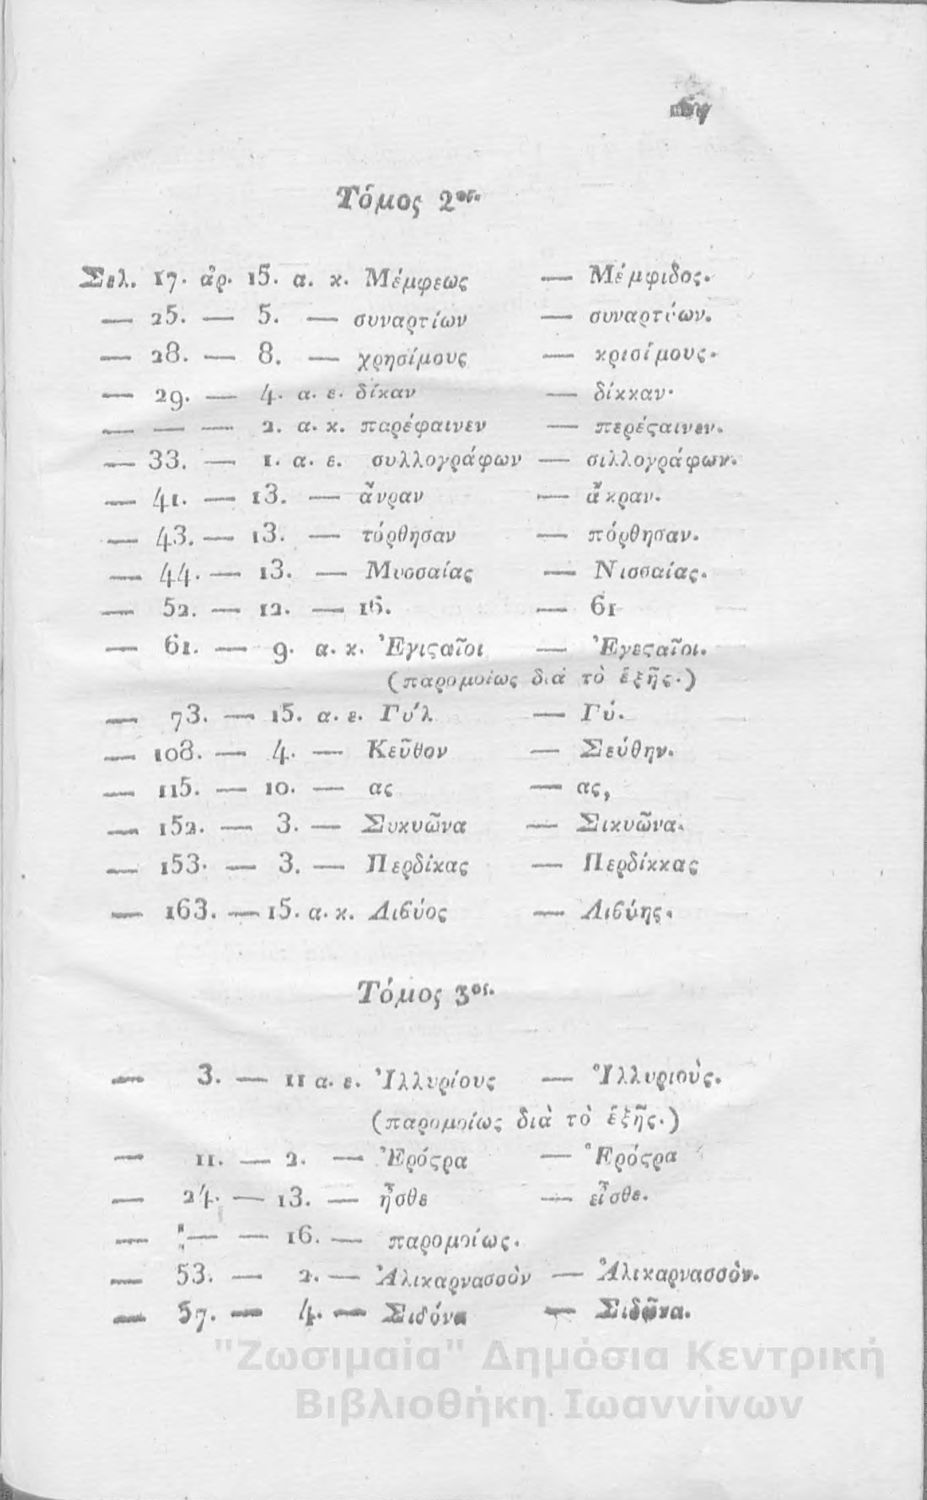 Τόμος 2ος.
Σελ. 17. ἀρ. 15. α. κ. Μέμφεως — Μέμφιδος.
— 25. — 5. — συναρτίων — συναρτύων.
— 28. — 8. — χρησίμους — κρισίμους.
— 29. — 4. α. ε. δίκαν — δίκκαν·
— — — 2. α. κ. παρέφαινεν — περέςαινεν.
— 33. — 1. α. ε. συλλογράφων — σιλλογράφων.
— 41. — 13. — ἄνραν — ἄκραν.
— 43. — 13. — τόρθησαν — πόρθησαν.
— 44. — 13. — Μυσσαίας — Νισσαίας.
— 52. — 12. — 16. — 61
— 61. — 9. α. κ. Ἐγιςαῖοι — Ἐγεςαῖοι.
(παρομοίως διὰ τὸ ἑξῆς.)
— 73. — 15. α. ε. Γύλ — Γύ.
— 108. — 4. — Κεῦθον — Σεύθην.
— 115. — 10. — ας — ας,
— 152. — 3. — Συκυῶνα — Σικυῶνα.
— 153. — 3. — Περδίκας — Περδίκκας
— 163. — 15. α. κ. Λιβύος — Λιβύης.
Τόμος 3ος.
— 3. — 11 α. ε. Ἰλλυρίους — Ἰλλυριοὺς.
(παρομοίως διὰ τὸ ἑξῆς.)
— 11. — 2. — Ἐρόςρα — Ἐρόςρα
— 24. — 13. — ἦσθε — εἶσθε.
— "— — 16. — παρομοίως.
— 53. — 2. — Ἀλικαρνασσὸν — Ἁλικαρνασσὸν.
— 57. — 4. — Σιδόνα — Σιδῶνα.
"Ζωσιμαία" Δημόσια Κεντρική
Βιβλιοθήκη Ιωαννίνων